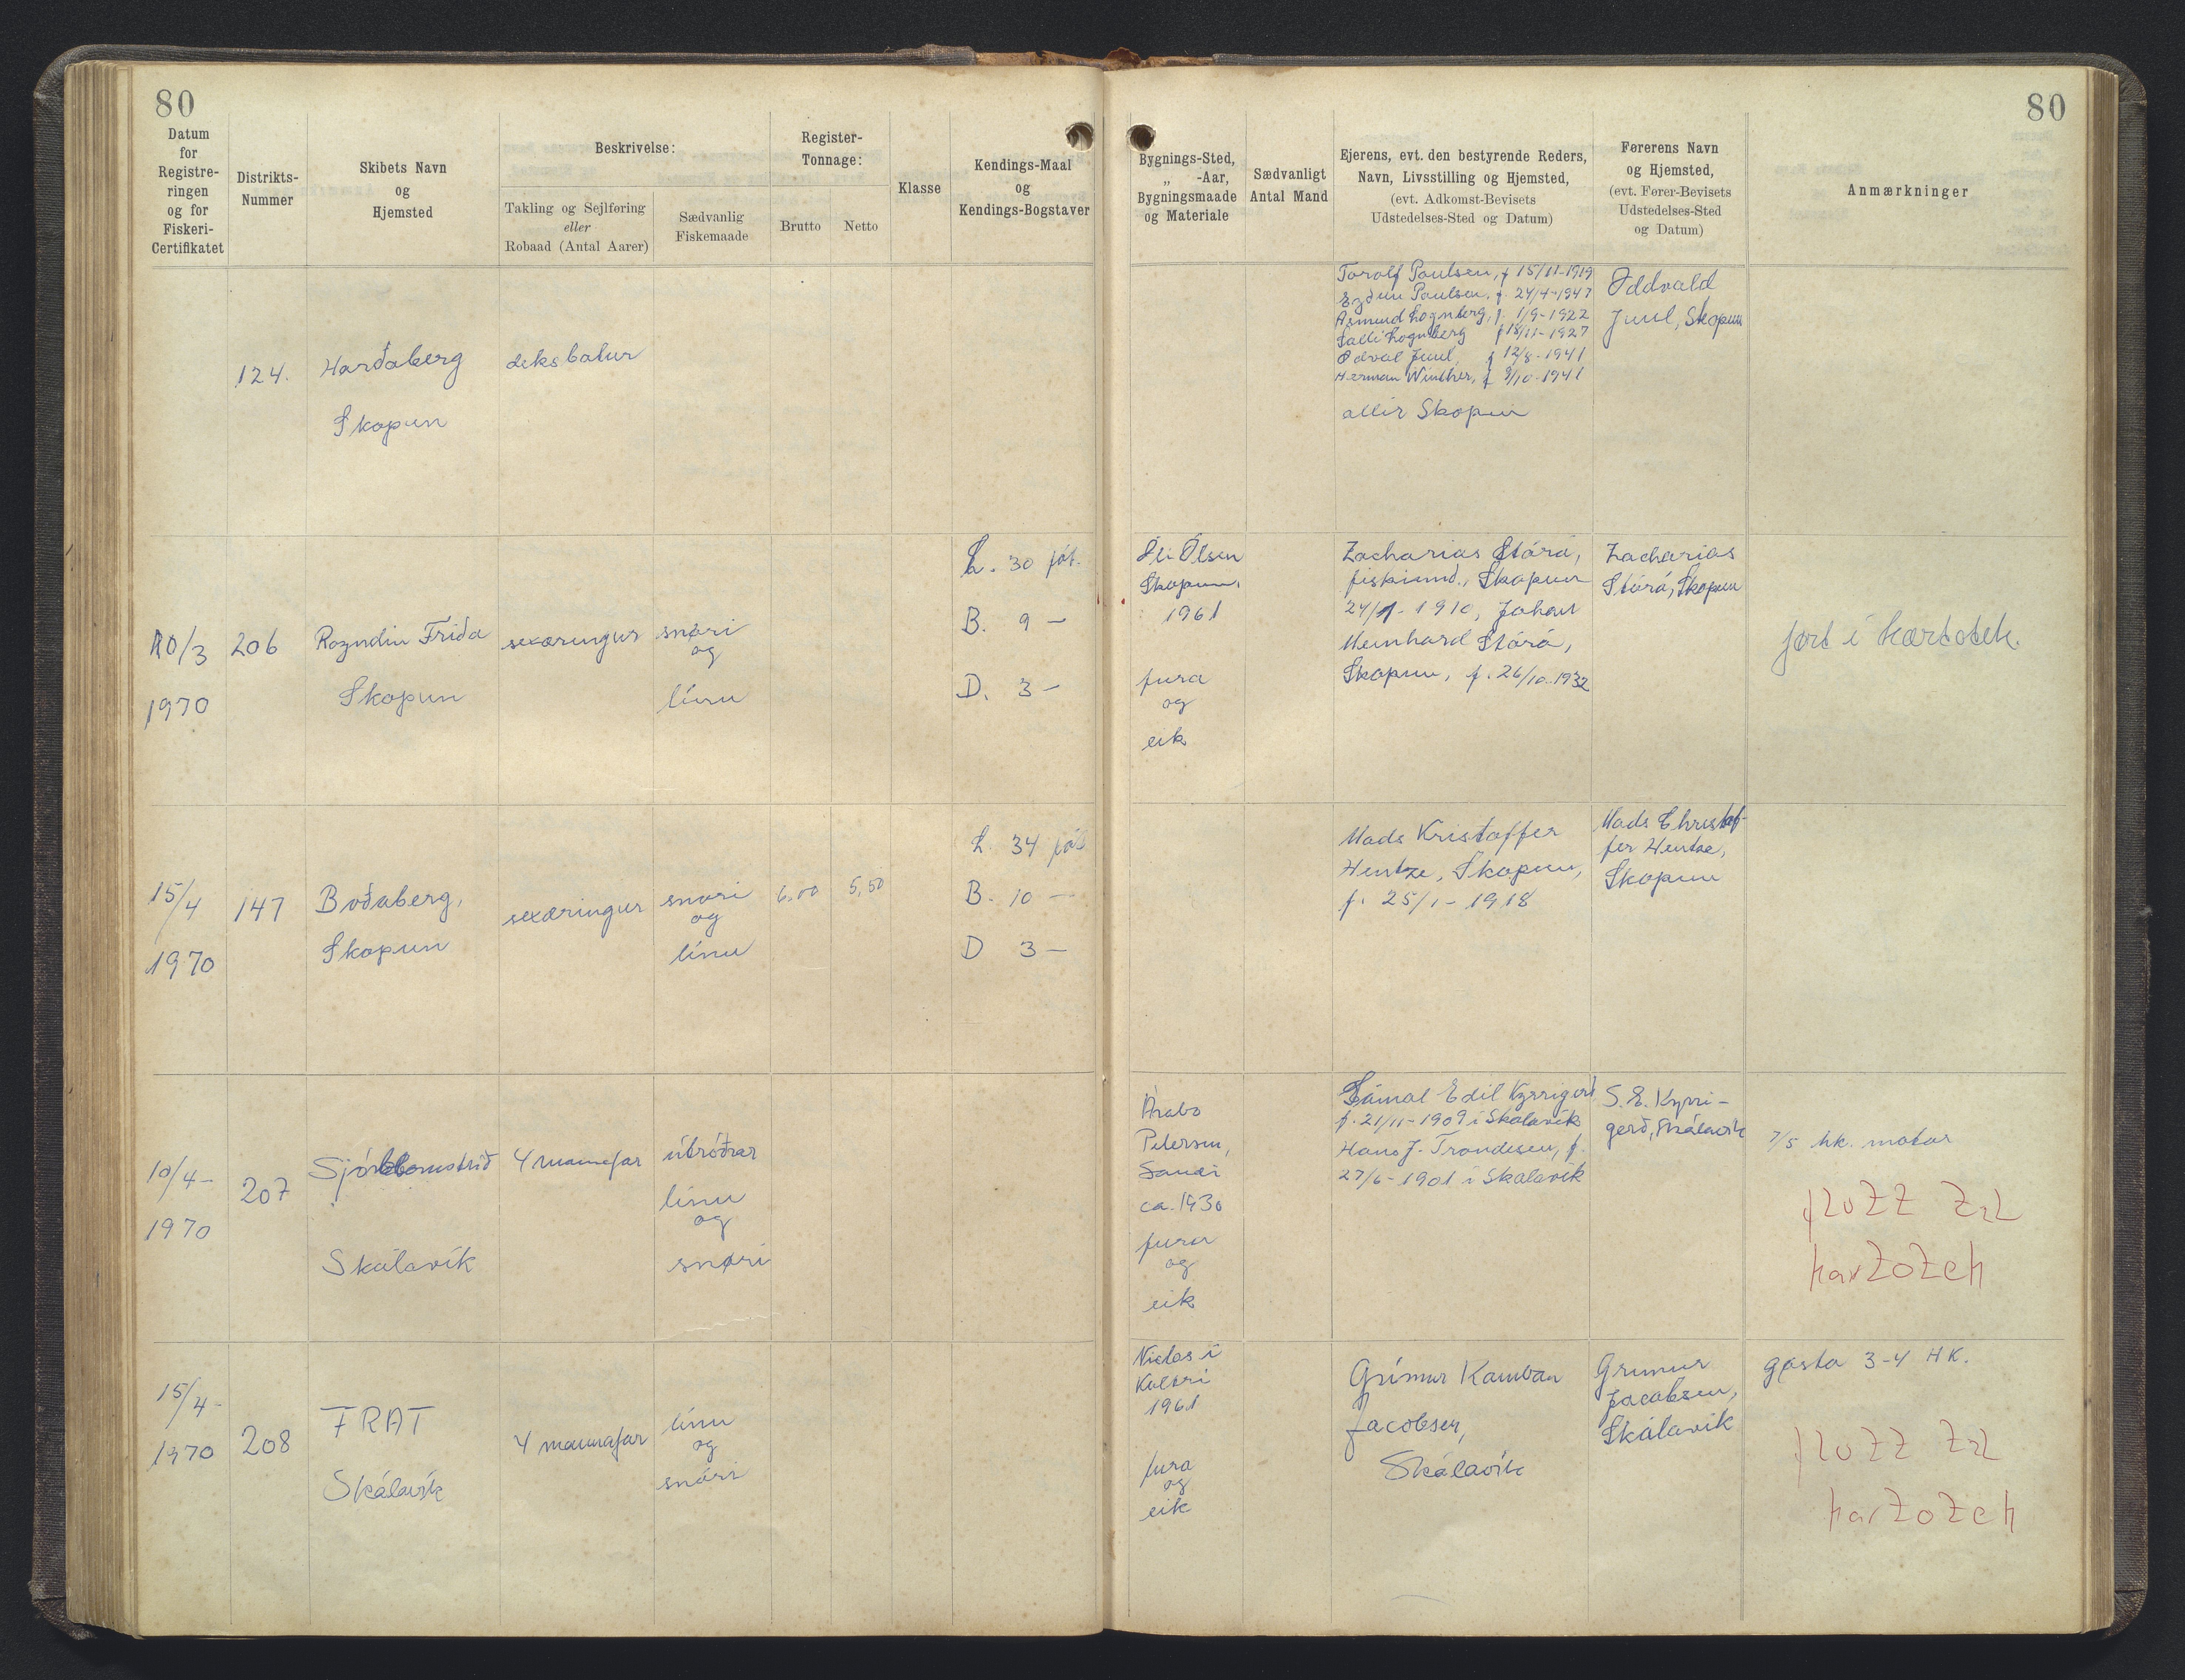 80
80
Datum
for
Registre-
ringen
og for
Fiskeri-
Certifikatet
Distrikts-
Nummer
Skibets Navn
og
Hjemsted
Beskrivelse:
Takling og Sejlføring
eller
Robaad (Antal Aarer)
Sædvanlig
Fiskemaade
Register-
Tonnage:
Brutto
Netto
Klasse
Kendings-Maal
og
Kendings-Bogstaver
Bygnings-Sted,
„ -Aar,
Bygningsmaade
og Materiale
Sædvanligt
Antal Mand
Ejerens, evt. den bestyrende Reders,
Navn, Livsstilling og Hjemsted,
(evt. Adkomst-Bevisets
Udstedelses-Sted og Datum)
Førerens Navn
og Hjemsted,
(evt. Fører-Bevisets
Udstedelses-Sted
og Datum)
Anmærkninger
124.
Harðaberg
Skopun
deksbatur
Torolf Poulsen, f 15/11-1919
Eyðun Poulsen, f. 24/4-1947
Asmund Lognberg, f. 1/9-1922
Salli Lognberg f 18/11-1927
Odval Juul, f 12/8-1941
Herman Winther, f 9/10-1941
allir Skopun
Oddvald
Juul, Skopun
10/3
1970
206
Rozndin Friða
Skopun
sexæringur
snøri
og
línu
L. 30 fót.
B. 9 —
D. 3 —
Óli Ólsen
Skopun,
1961
fura
og
eik
Zacharias Stórá,
fiskimd., Skopun
24/1-1910, Johan
Meinhard Stórá,
Skopun, f. 26/10-1932
Zacharias
Stórá, Skopun
ført i kartotek.
15/4
1970
147
Boðaberg,
Skopun
sexæringur
snøri
og
línu
6,00
5,50
L. 34 fót
B. 10 —
D 3 —
Mads Kristoffer
Hentze, Skopun,
f. 25/1-1918
Mads Christof-
fer Hentze,
Skopun
10/4-
1970
207
Skálavík
4 mannafar
útróðrar
línu
og
snøri
Petersen,
Sandi
ca. 1930
fura
og
eik
Sámal Edil Kyrrigerð
f. 21/11-1909 i Skálavík
Hans J. Trondesen, f.
27/6-1901 i Skálavík
S. E. Kyrri-
gerð, Skálavík
7/5 hk. motor
ført i
kartotek
15/4-
1970
208
FRAT
Skálavík
4 mannafar
línu
og
snøri
Niclas í
Koltri
1961
fura
og
eik
Grímur Kamban
Jacobsen,
Skálavík
Grímur
Jacobsen,
Skálavík
gasta 3-4 HK.
ført i
kartotek